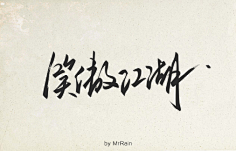 笑傲江湖
by MrRain